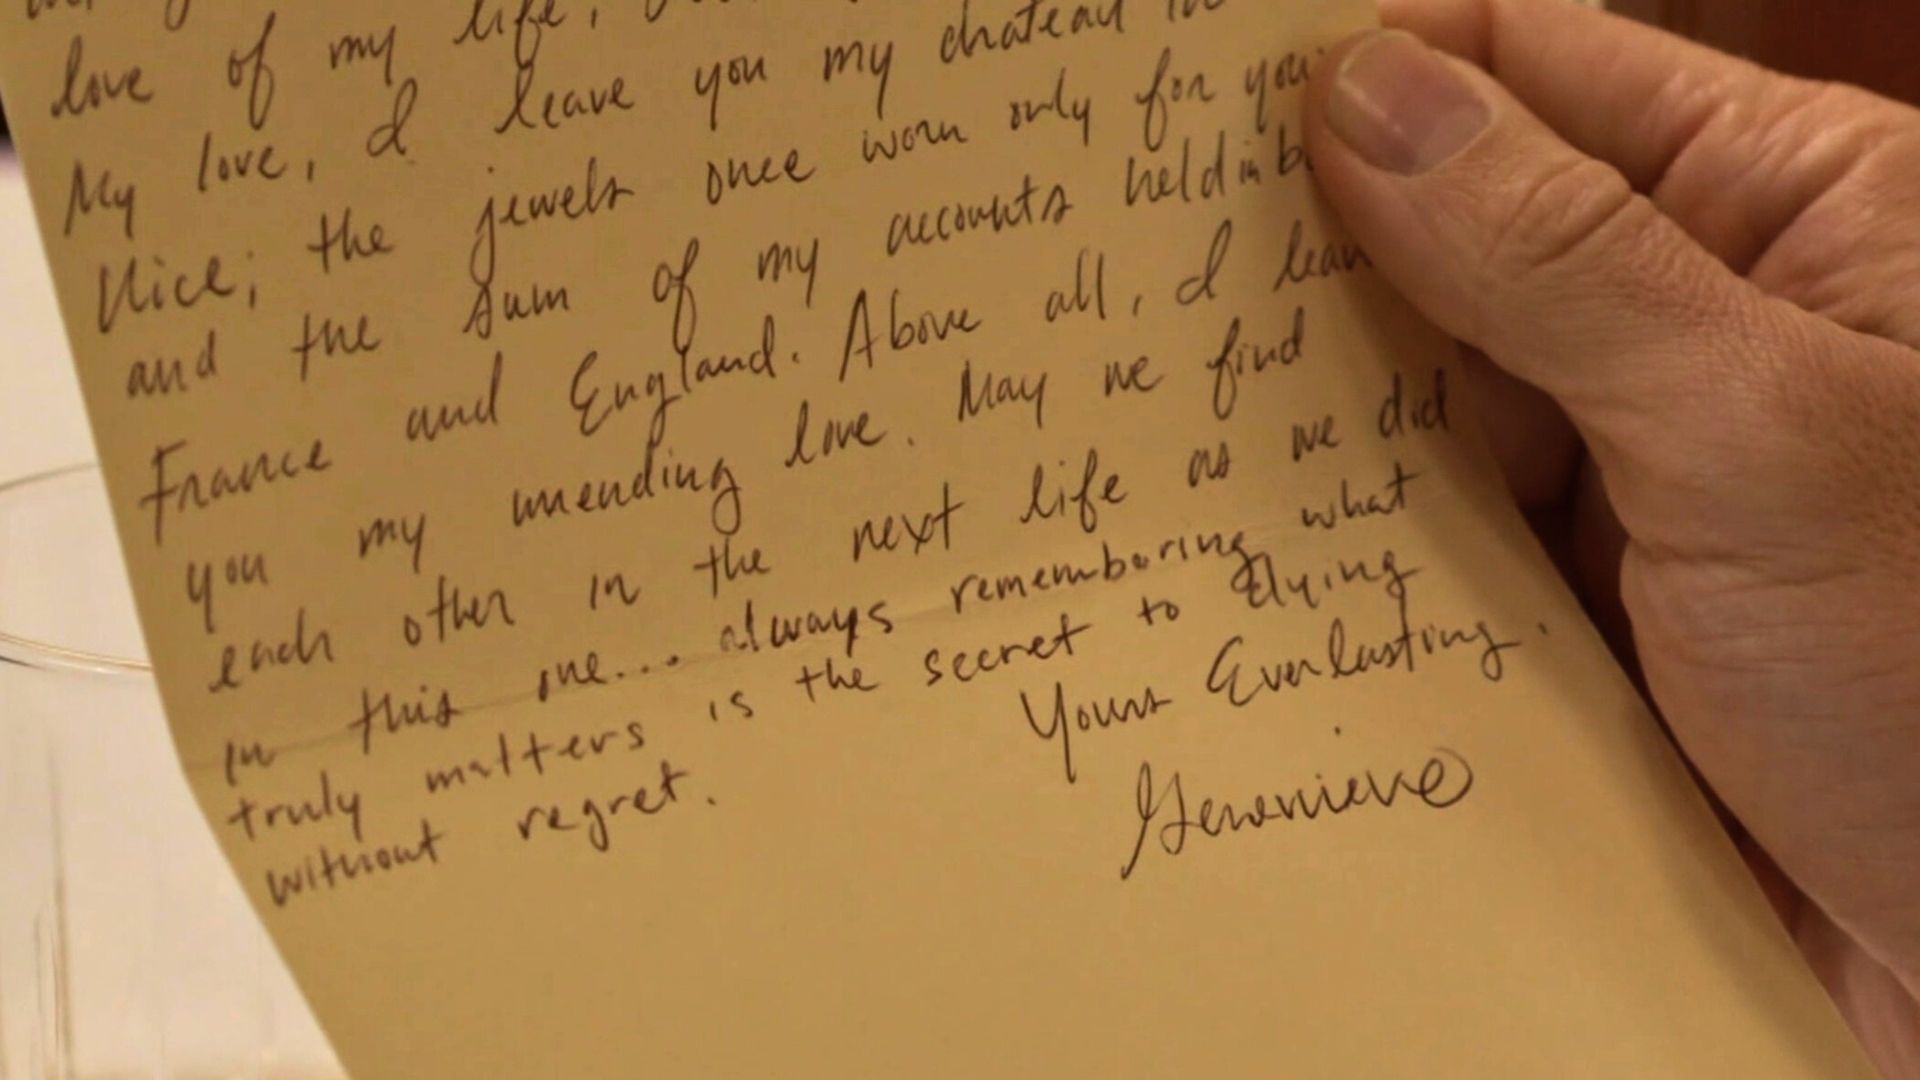 love of my life,
My love, I leave you my chateau in
Nice; the jewels once worn only for you;
and the sum of my accounts held in
France and England. Above all, I
you my unending love. May we find
each other in the next life as we did
in this one... always remembering what
truly matters is the secret to dying
without regret.
Yours Everlasting.
Genevieve